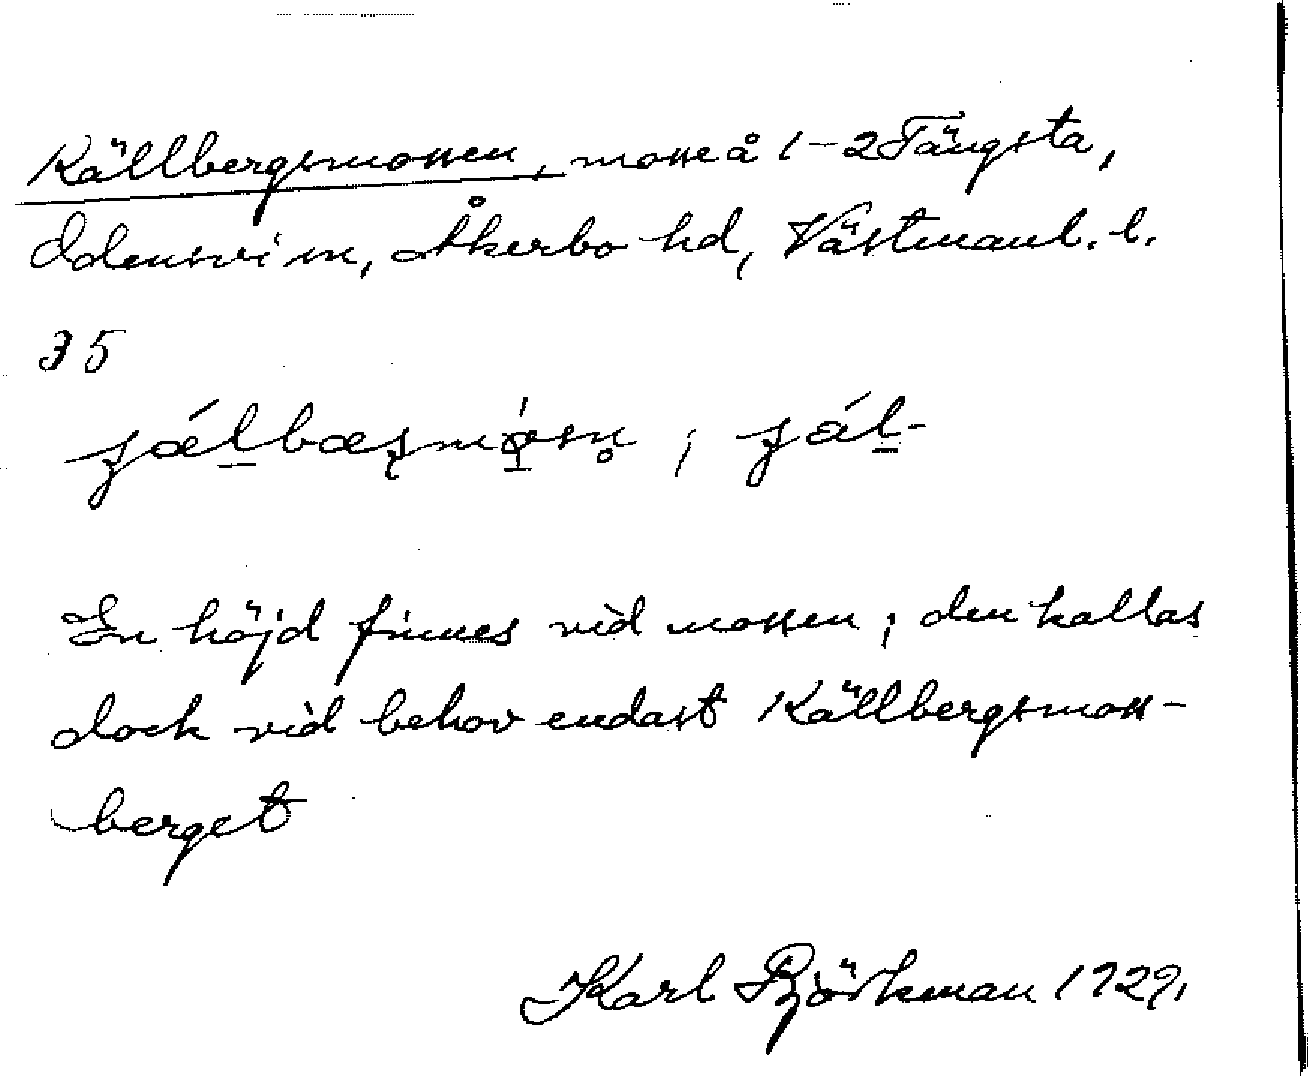 Källbergsmossen, mosse å 1-2 Tängsta,
Odensvi sn, Åkerbo hd, Västmanl. l.
35
En höjd finnes vid mossen; den kallas
dock vid behov endast Källbergsmoss-
berget
Karl Björkman 1929,